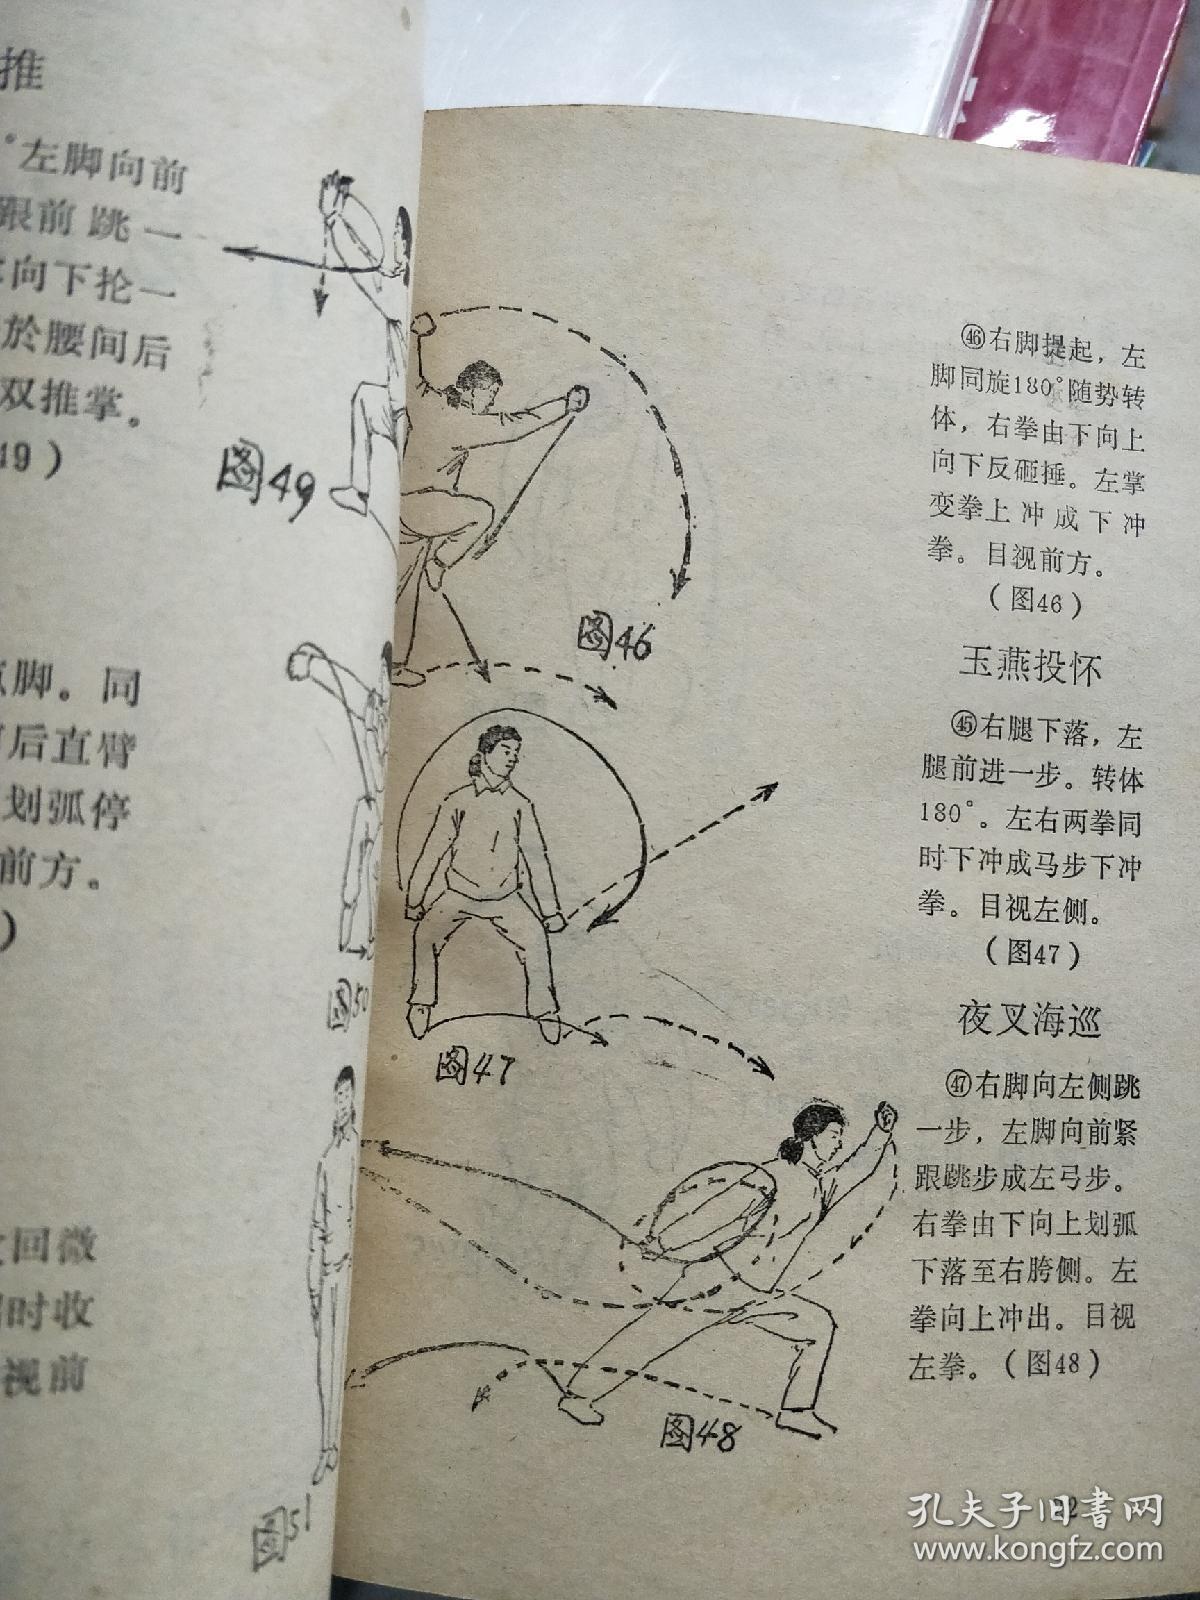 推
左脚向前
跟前跳一
向下抡一
於腰间后
双推掌。
49）
图49
脚。同
后直臂
划弧停
前方。
）
图50
回微
时收
视前
图51
㊻右脚提起，左
脚同旋180°随势转
体，右拳由下向上
向下反砸捶。左掌
变拳上冲成下冲
拳。目视前方。
（图46）
图46
玉燕投怀
㊺右腿下落，左
腿前进一步。转体
180°。左右两拳同
时下冲成马步下冲
拳。目视左侧。
（图47）
图47
夜叉海巡
㊼右脚向左侧跳
一步，左脚向前紧
跟跳步成左弓步。
右拳由下向上划弧
下落至右胯侧。左
拳向上冲出。目视
左拳。（图48）
图48
孔夫子旧书网
www.kongfz.com